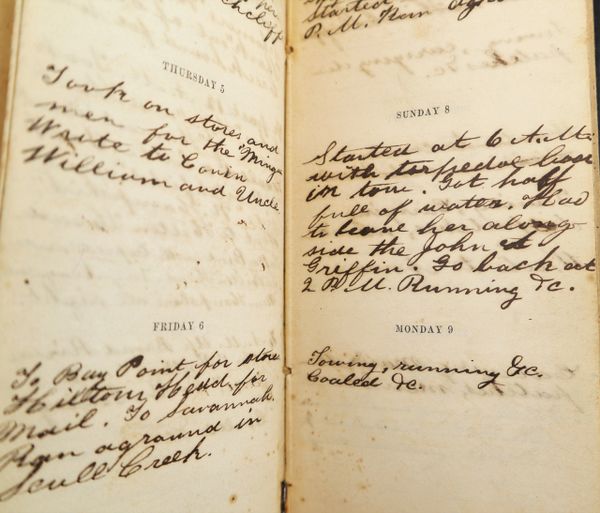 THURSDAY 5
Took on stores and
men for the "Mingo"
Write to Cousin
William and Uncle
FRIDAY 6
To Bay Point for store
Hilton Head for
Mail. To Savannah.
Ran aground in
Scull Creek.
Started
P.M. Ran
SUNDAY 8
Started at 6 A.M.
with torpedoe boat
in tow. Got half
full of water. Had
to leave her along
side the John
Griffin. Go back at
2 P.M. Running &c.
MONDAY 9
Towing, running &c.
Coaled &c.